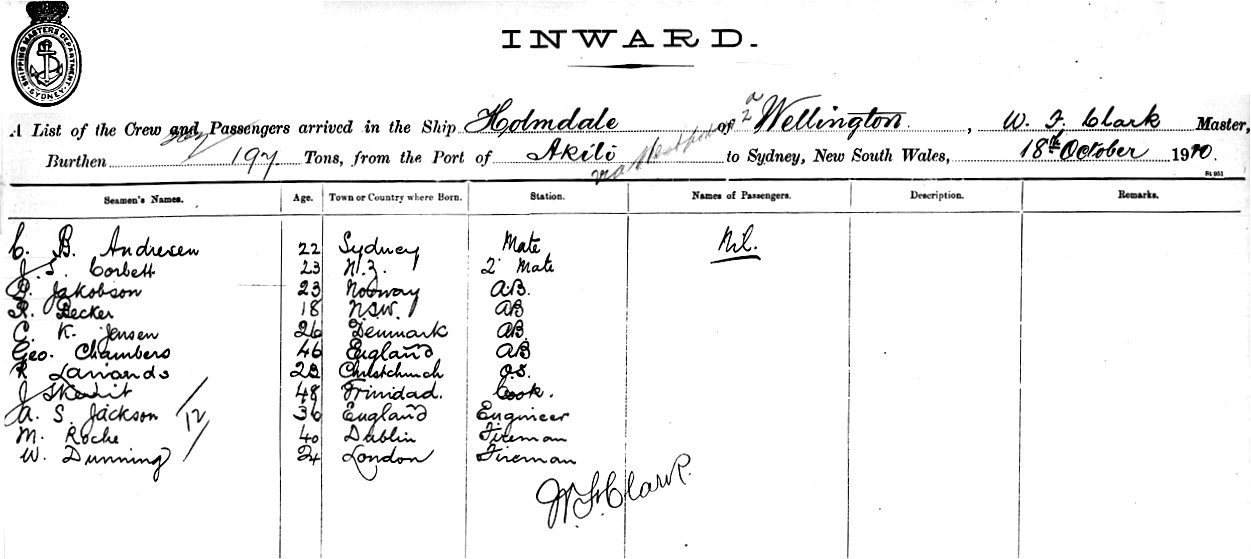 SHIPPING MASTERS DEPARTMENT
SYDNEY
INWARD.
A List of the Crew and Passengers arrived in the Ship Holmdale of Wellington , W. F. Clark Master,
Burthen 197 Tons, from the Port of Akiti to Sydney, New South Wales, 18th October 1910.
S1 951
Seamen's Names. Age. Town or Country where Born. Station. Names of Passengers. Description. Remarks.
C. B. Andresen 22 Sydney Mate Nil.
J. S. Corbett 23 N.Z. 2 Mate
Jakobson 23 Norway AB.
R. Becker 18 N.S.W. AB
C. K. Jensen 26 Denmark AB.
Geo. Chambers 46 England AB
R 23 Christchurch O.S.
J 48 Trinidad. Cook.
A. S. Jackson 12 36 England Engineer
M. Roche 40 Dublin Fireman
W. Dunning 24 London Fireman
W. F. Clark.